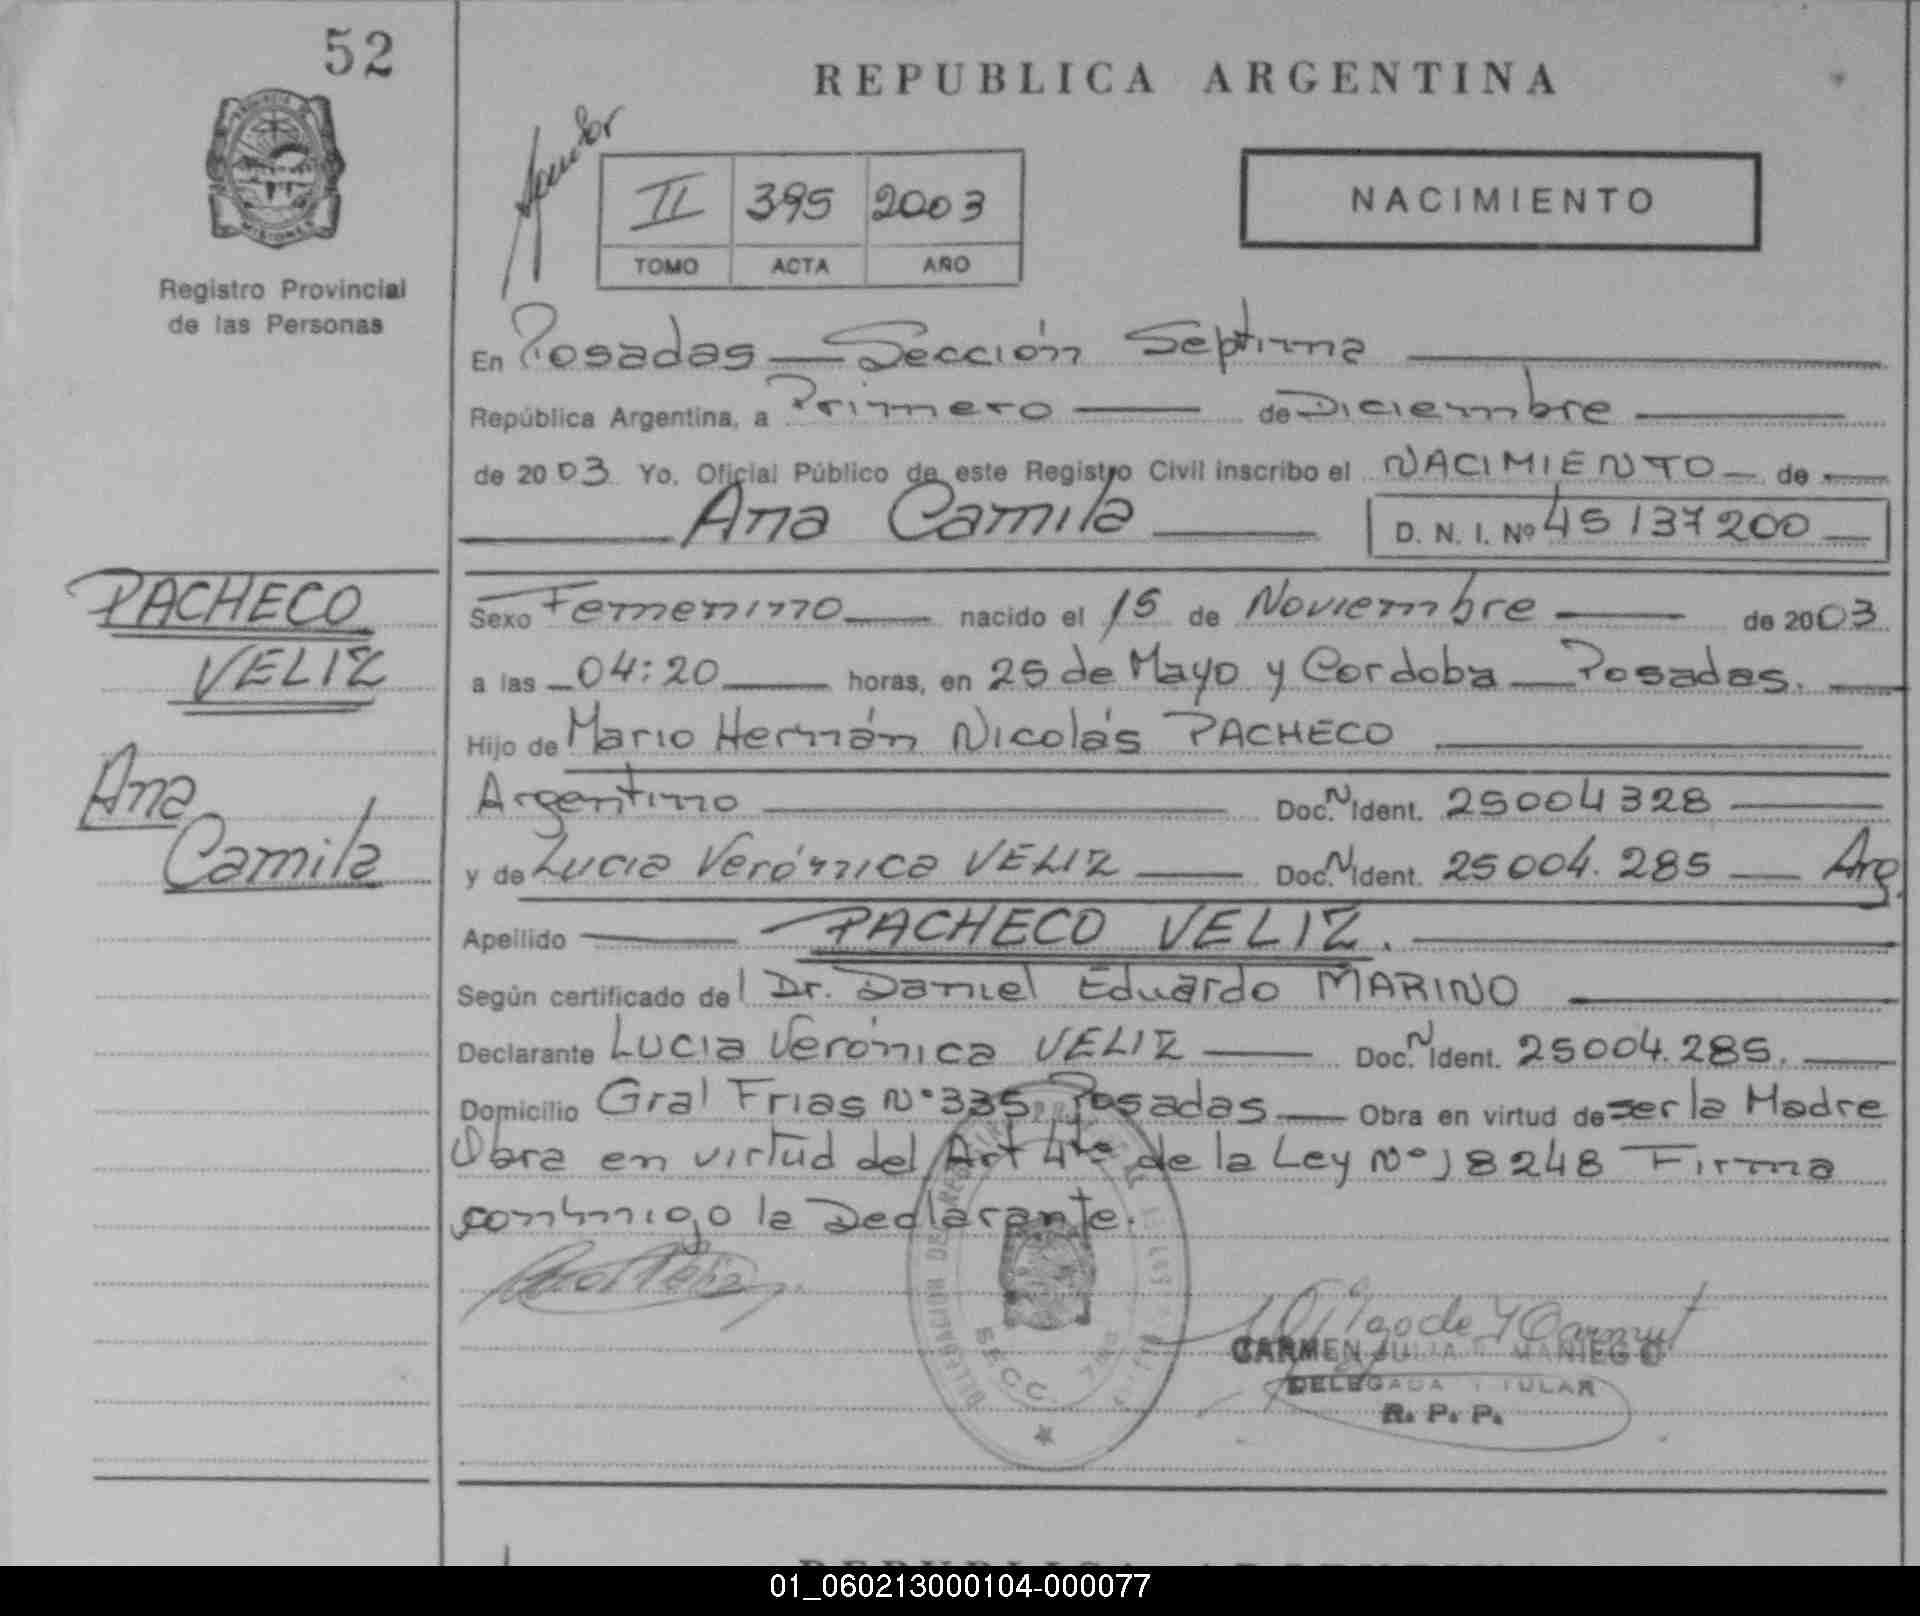 52
REPUBLICA ARGENTINA
II 395 2003
TOMO ACTA AÑO
NACIMIENTO
MISIONES
Registro Provincial
de las Personas
En Posadas — Sección Septima
República Argentina, a Primero de Diciembre
de 2003 Yo. Oficial Público de este Registro Civil inscribo el NACIMIENTO de
Ana Camila D. N. I. Nº 45137200
PACHECO
VELIZ
Ana
Camila
Sexo Femenino nacido el 15 de Noviembre de 2003
a las 04:20 horas, en 25 de Mayo y Cordoba — Posadas.
Hijo de Mario Hernán Nicolás PACHECO
Argentino Doc. N Ident. 25004328
y de Lucia Verónica VELIZ Doc. N Ident. 25004.285 Arg.
Apellido PACHECO VELIZ.
Según certificado del Dr. Daniel Eduardo MARINO
Declarante Lucia Verónica VELIZ Doc. N Ident. 25004.285.
Domicilio Gral Frias Nº 335 Posadas — Obra en virtud de ser la Madre
Obra en virtud del Art 4to de la Ley Nº 18248 Firma
conmigo la Declarante.
SECC. 7ma
CARMEN JULIA MANIEGO
DELEGADA TITULAR
R. P. P.
01_060213000104-000077